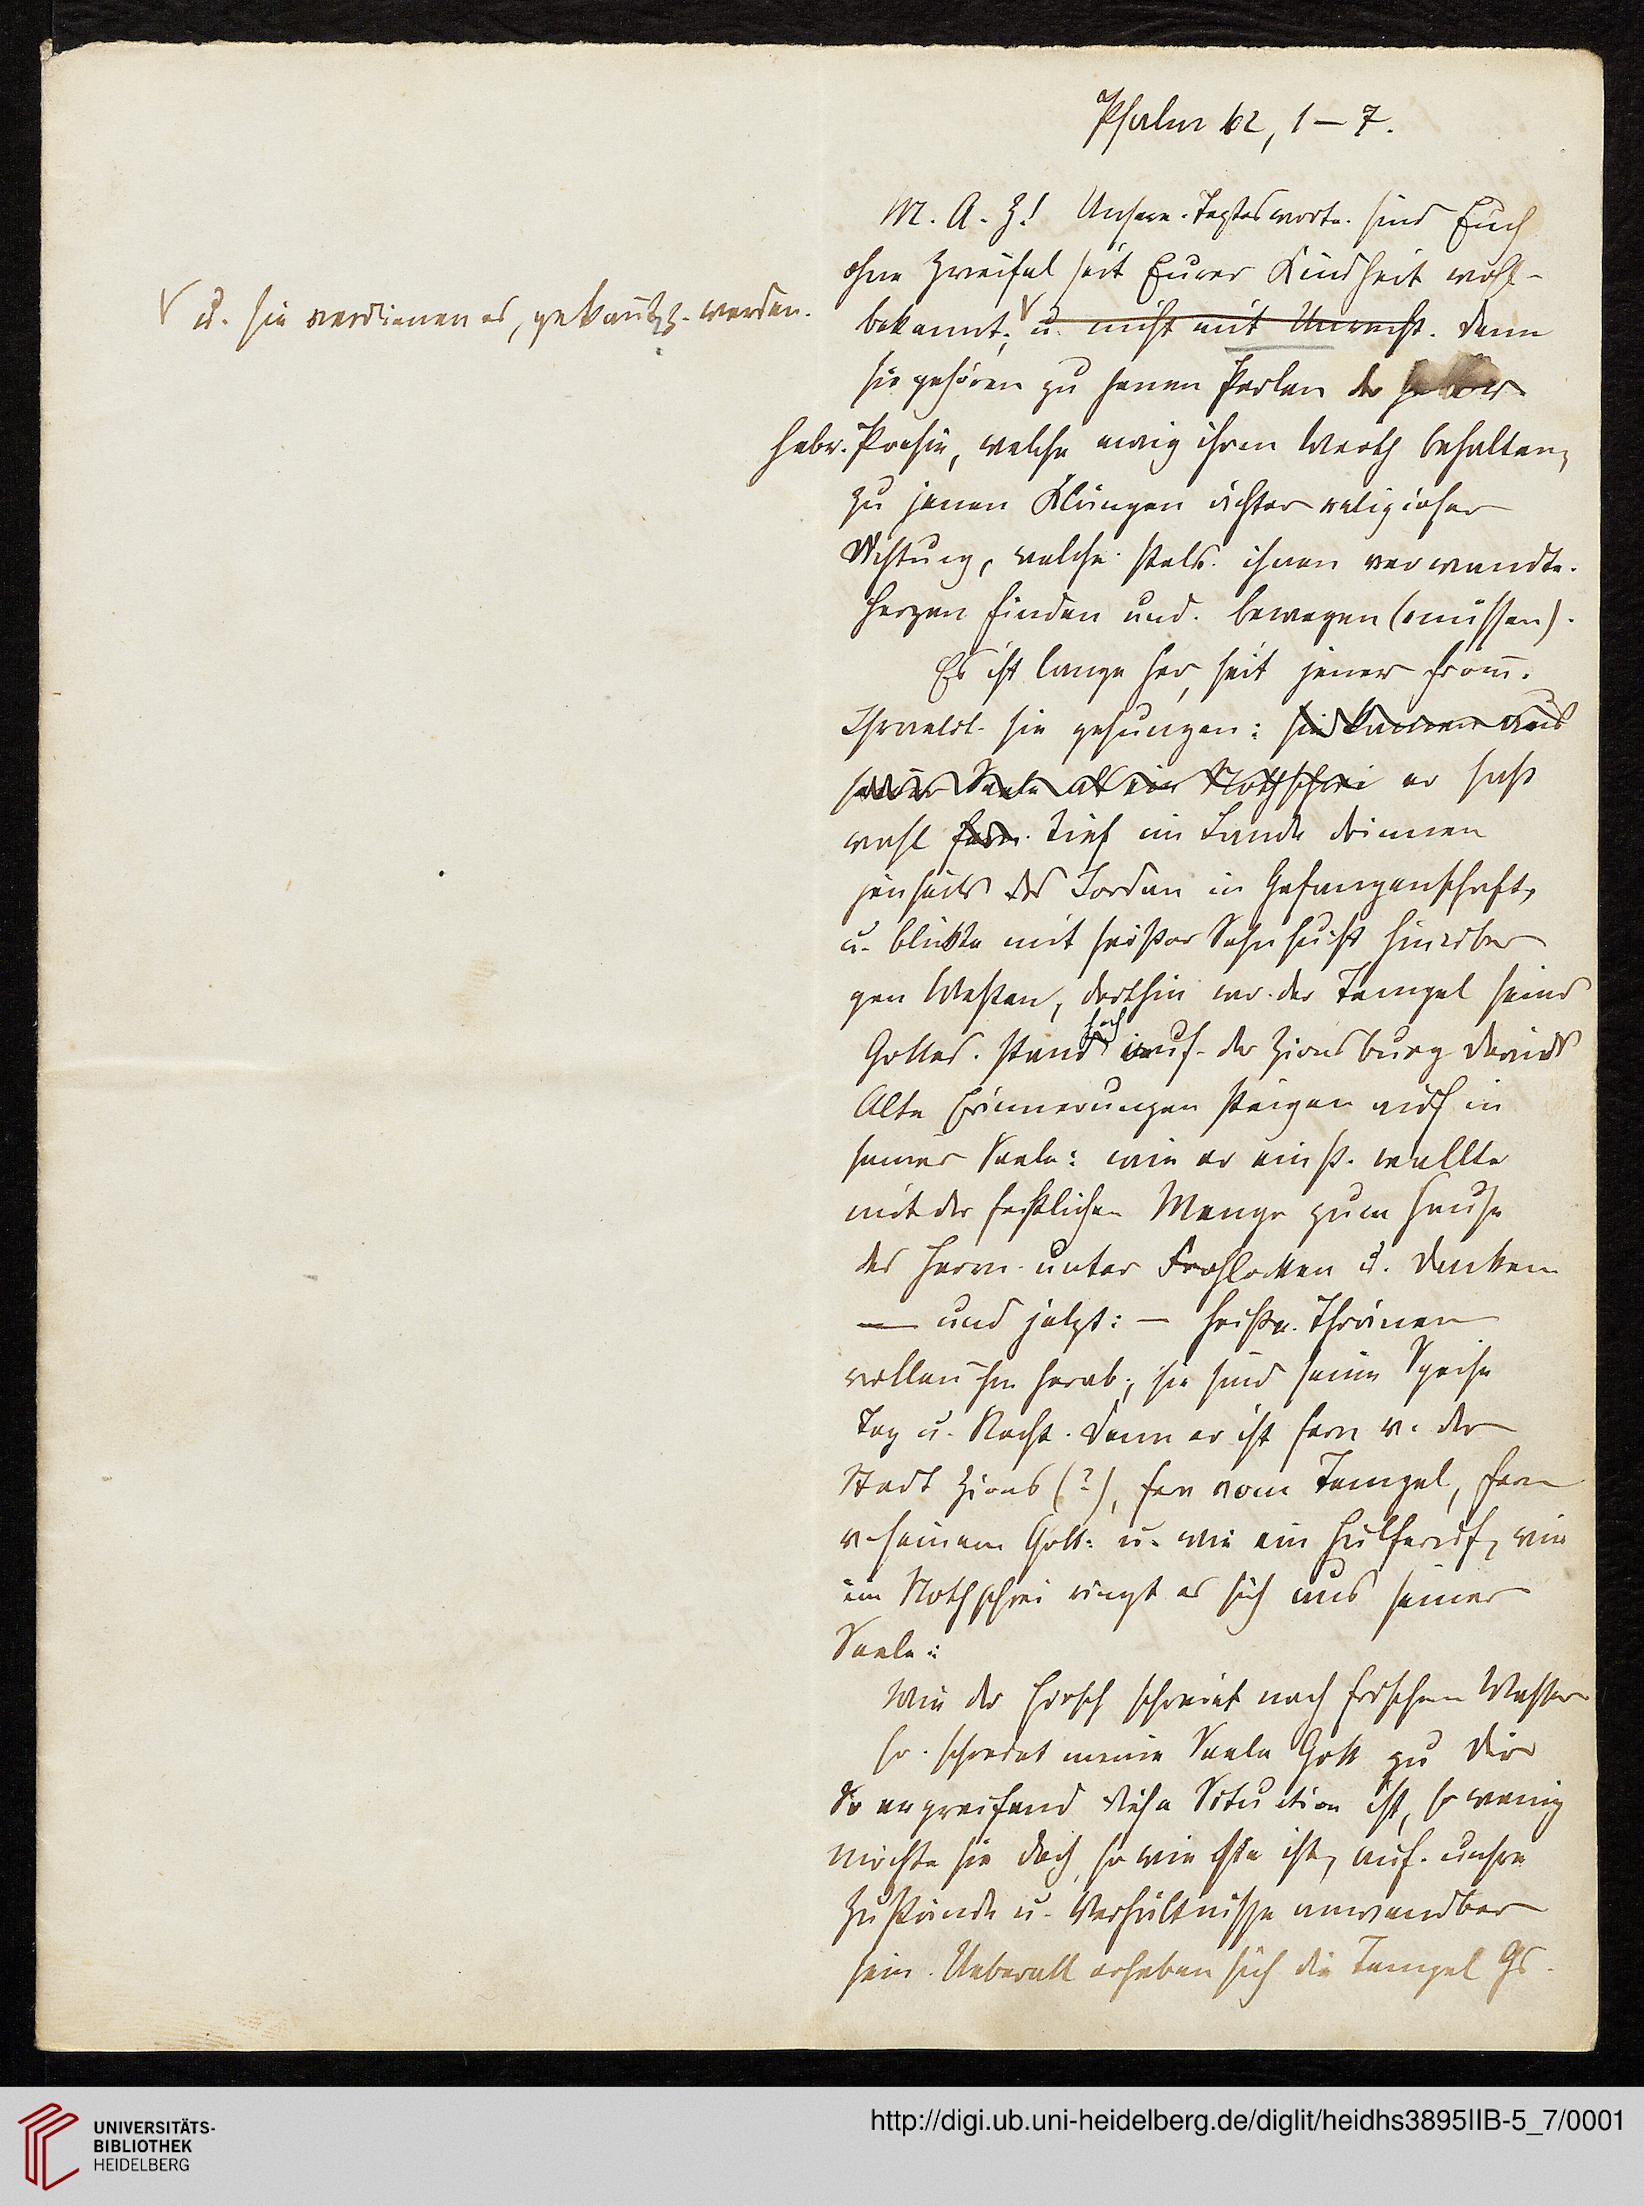 Psalm 42, 1–7.
M. A. Z! Unsere Textesworte sind Euch
ohne Zweifel seit Eurer Kindheit wohl-
bekannt; u. nicht mit Unrecht. denn
V u. sie verdienen es, gekannt z. werden.
sie gehören zu jenen Perlen der
hebr. Poesie, welche ewig ihren Werth behalten,
zu jenen Klängen ächter religiöser
Dichtung, welche stets ihnen verwandte
Herzen finden und bewegen (müssen).
Es ist lange her, seit jener from̄.
Israelit sie gesungen: sie kamen aus
seiner Seele als ein Nothschrei er saß
wohl fern tief im Lande drinnen
jenseits des Jordan in Gefangenschaft,
u. blickte mit heißer Sehnsucht hinüber
gen Westen, dorthin wo der Tempel seines
Gottes stand hoch auf der Zionsburg Davids
Alte Erinnerungen steigen auf in
seiner Seele: wie er einst wallte
mit der festlichen Menge zum Hause
des Herrn unter Frohlocken u. Danken
— und jetzt: — heiße Thränen
rollen ihm herab; sie sind seine Speise
Tag u. Nacht. Denn er ist fern v. der
Stadt Zions (?), fern vom Tempel, fern
v. seinem Gott: u. wie ein Hülferuf, wie
ein Nothschrei ringt es sich aus seiner
Seele:
Wie der Hirsch schreiet nach frischem Wasser
so schreiet meine Seele Gott zu Dir
So ergreifend diese Situation ist, so wenig
möchte sie doch, so wie sie ist, auf unsre
Zustände u. Verhältnisse anwendbar
sein. Ueberall erheben sich die Tempel Gs.
UNIVERSITÄTS-
BIBLIOTHEK
HEIDELBERG
http://digi.ub.uni-heidelberg.de/diglit/heidhs3895IIB-5_7/0001